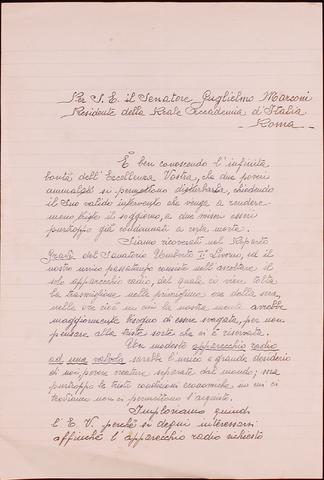 Per S. E. il Senatore Guglielmo Marconi
Presidente della Reale Accademia d'Italia
- Roma -
È ben conoscendo l'infinita
bontà dell'Eccellenza Vostra, che due poveri
ammalati si permettono disturbarla, chiedendo
il Suo valido intervento che venga a rendere
meno triste il soggiorno, a due miseri esseri
purtroppo già condannati a certa morte.
Siamo ricoverati nel Reparto
Gravi del Sanatorio Umberto I° Livorno, ed il
nostro unico passatempo consiste nell'ascoltare il
solo apparecchio radio, del quale ci viene tolta
la trasmissione nelle primissime ore della sera,
nelle ore cioè in cui la nostra mente avrebbe
maggiormente bisogno di essere svagata, per non
pensare alla triste sorte che ci è riservata.
Un modesto apparecchio radio
ad una valvola sarebbe l'unico e grande desiderio
di noi, povere creature separate dal mondo; ma
purtroppo le tristi condizioni economiche in cui ci
troviamo non ci permettono l'acquisto.
Imploriamo quindi
l'E. V. perchè si degni interessarsi
affinchè l'apparecchio radio richiesto